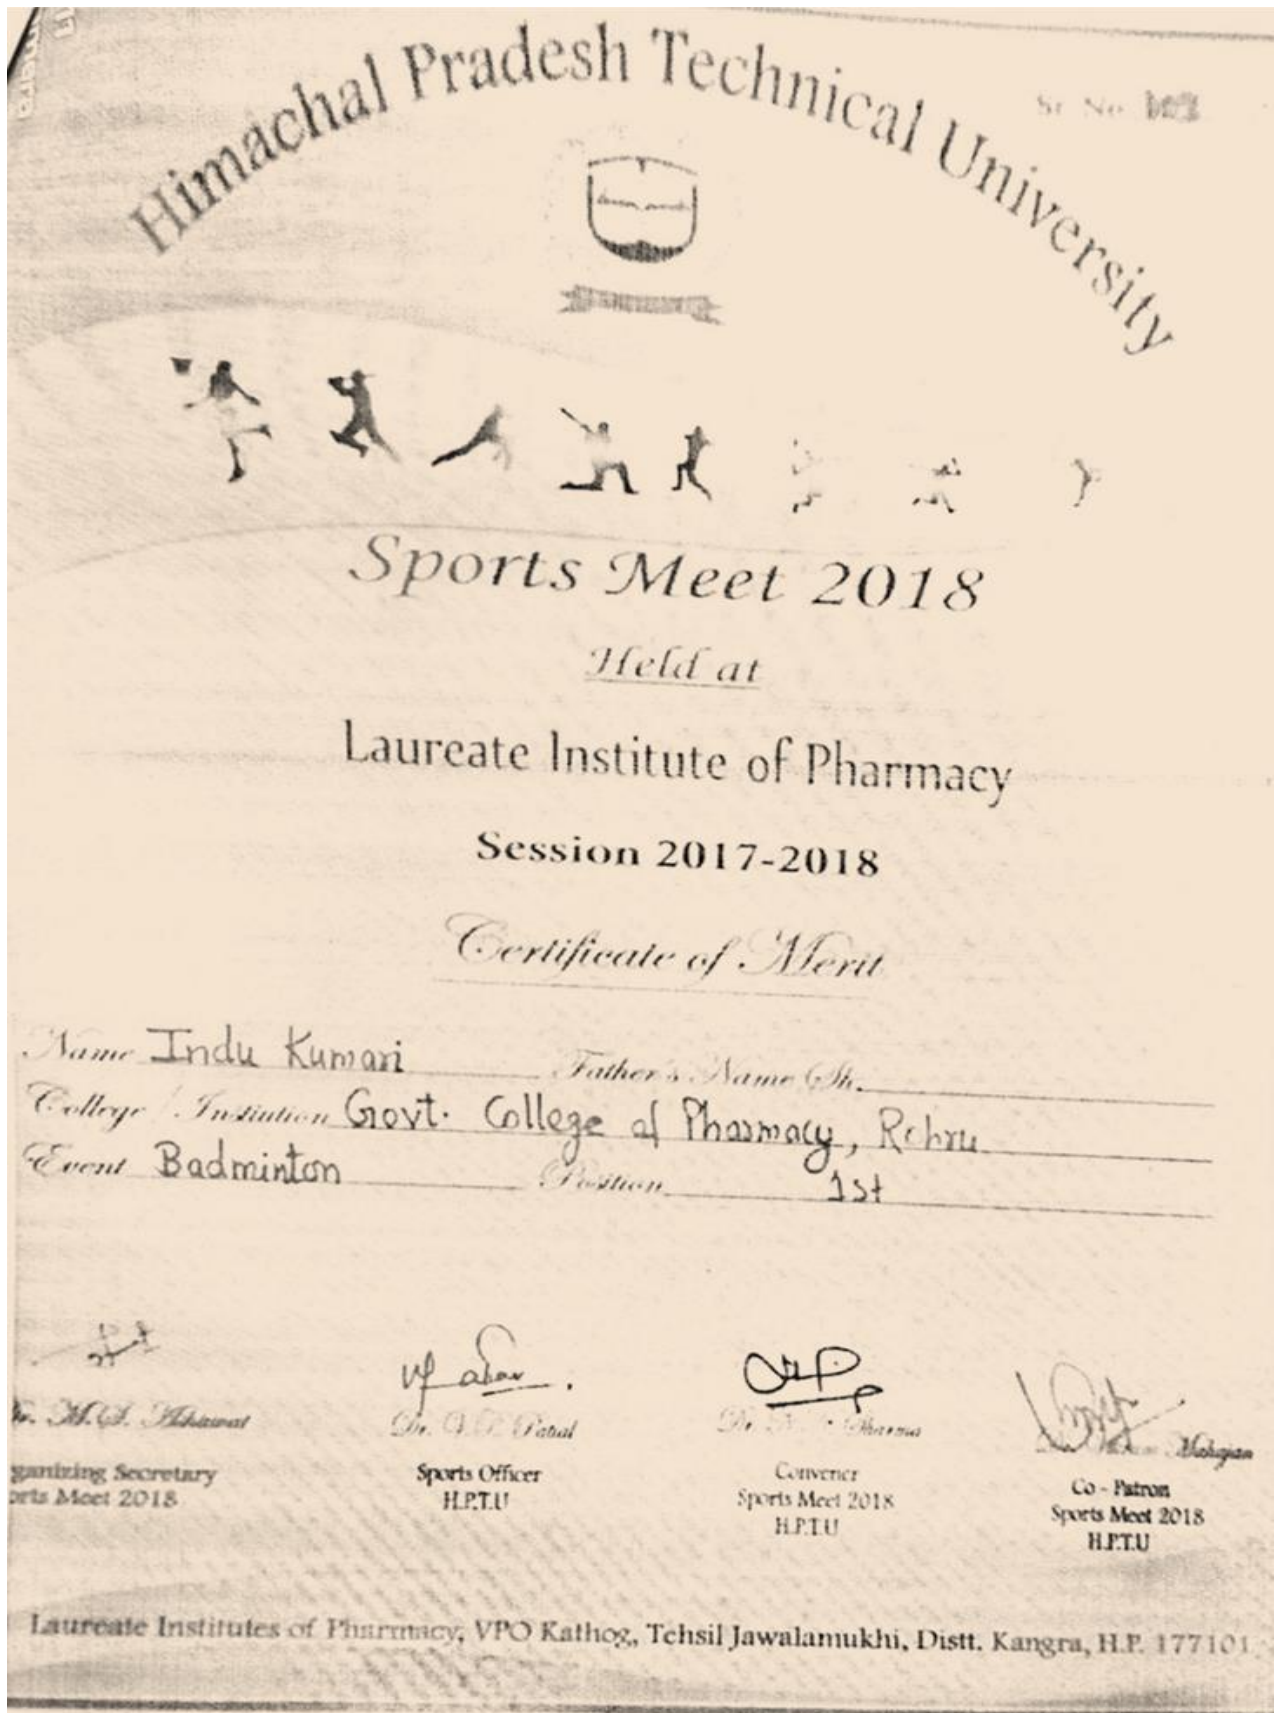 Himachal Pradesh Technical University
Sr. No.
Sports Meet 2018
Held at
Laureate Institute of Pharmacy
Session 2017-2018
Certificate of Merit
Name Indu Kumari Father's Name Sh.
College / Instiution Govt. College of Pharmacy, Rohru
Event Badminton Position 1st
Dr. M.S. Ashawat Dr. V.P. Patial Dr. Sharma Mahajan
ganizing Secretary Sports Officer Convener Co - Patron
orts Meet 2018 H.P.T.U Sports Meet 2018 Sports Meet 2018
H.P.T.U H.P.T.U
Laureate Institutes of Pharmacy, VPO Kathog, Tehsil Jawalamukhi, Distt. Kangra, H.P. 177101